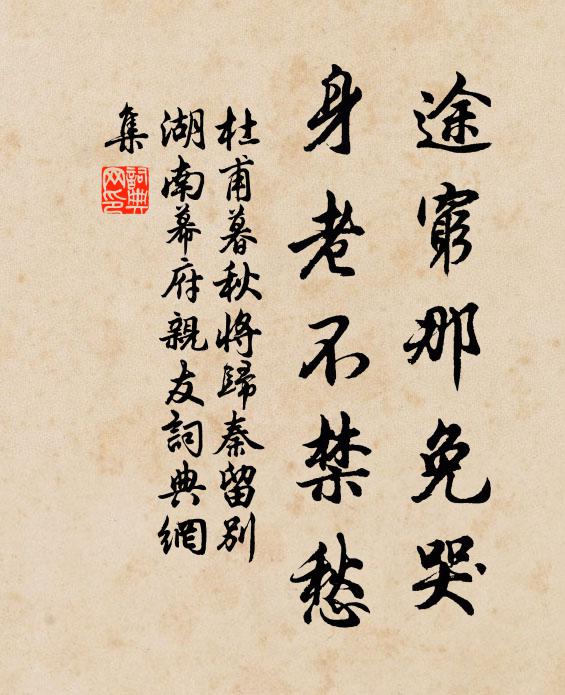 途窮那免哭
身老不禁愁
杜甫暮秋將歸秦留別
湖南幕府親友詞典網
集
詞典
网印